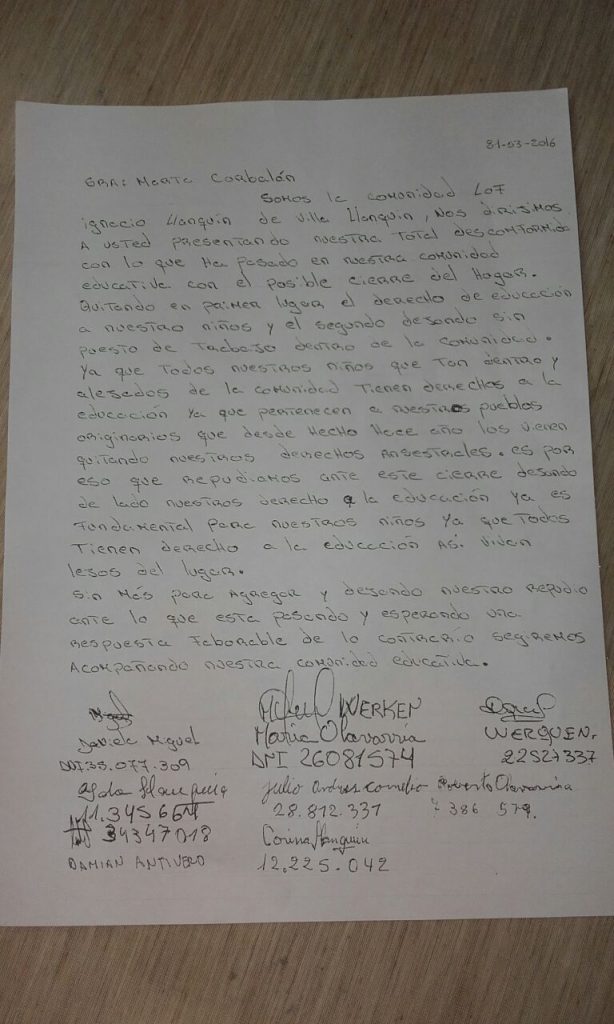 31-03-2016
SRA: Marta Corbalón
Somos la comunidad Lof
ignacio Llanquin de Villa Llanquin, nos dirisimos
A usted presentando nuestra total descomformida
con lo que ha pasado en nuestra comunidad
educativa con el posible cierre del Hogar.
Quitando en primer lugar el derecho de educación
a nuestro niños y el segundo desando sin
puesto de Trabajo dentro de la comunidad.
Ya que todos nuestros niños que tan dentro y
alesados de la comunidad tienen derechos a la
educación ya que pertenecen a nuestros pueblos
originarios que desde hecho hace año los vienen
quitando nuestros derechos ansestrales. es por
eso que repudiamos ante este cierre desando
de lado nuestros derecho a la educación ya es
Fundamental para nuestros niños ya que todos
Tienen derecho a la educación así vivan
lesos del lugar.
Sin más para agregar y desando nuestro repudio
ante lo que esta pasando y esperando una
respuesta faborable de lo contrario segiremos
Acompañando nuestra comunidad educativa.
WERKEN
Daniela Miguel Maria Olavarria WERQUEN.
DNI 35.077.309 DNI 26081574 22527337
Julio Andres Cornelio Roberto Olavarria
11.345664 28.812.331 7 386 579.
34347018 Corina Llanquin
DAMIAN ANTIVERO 12.225.042